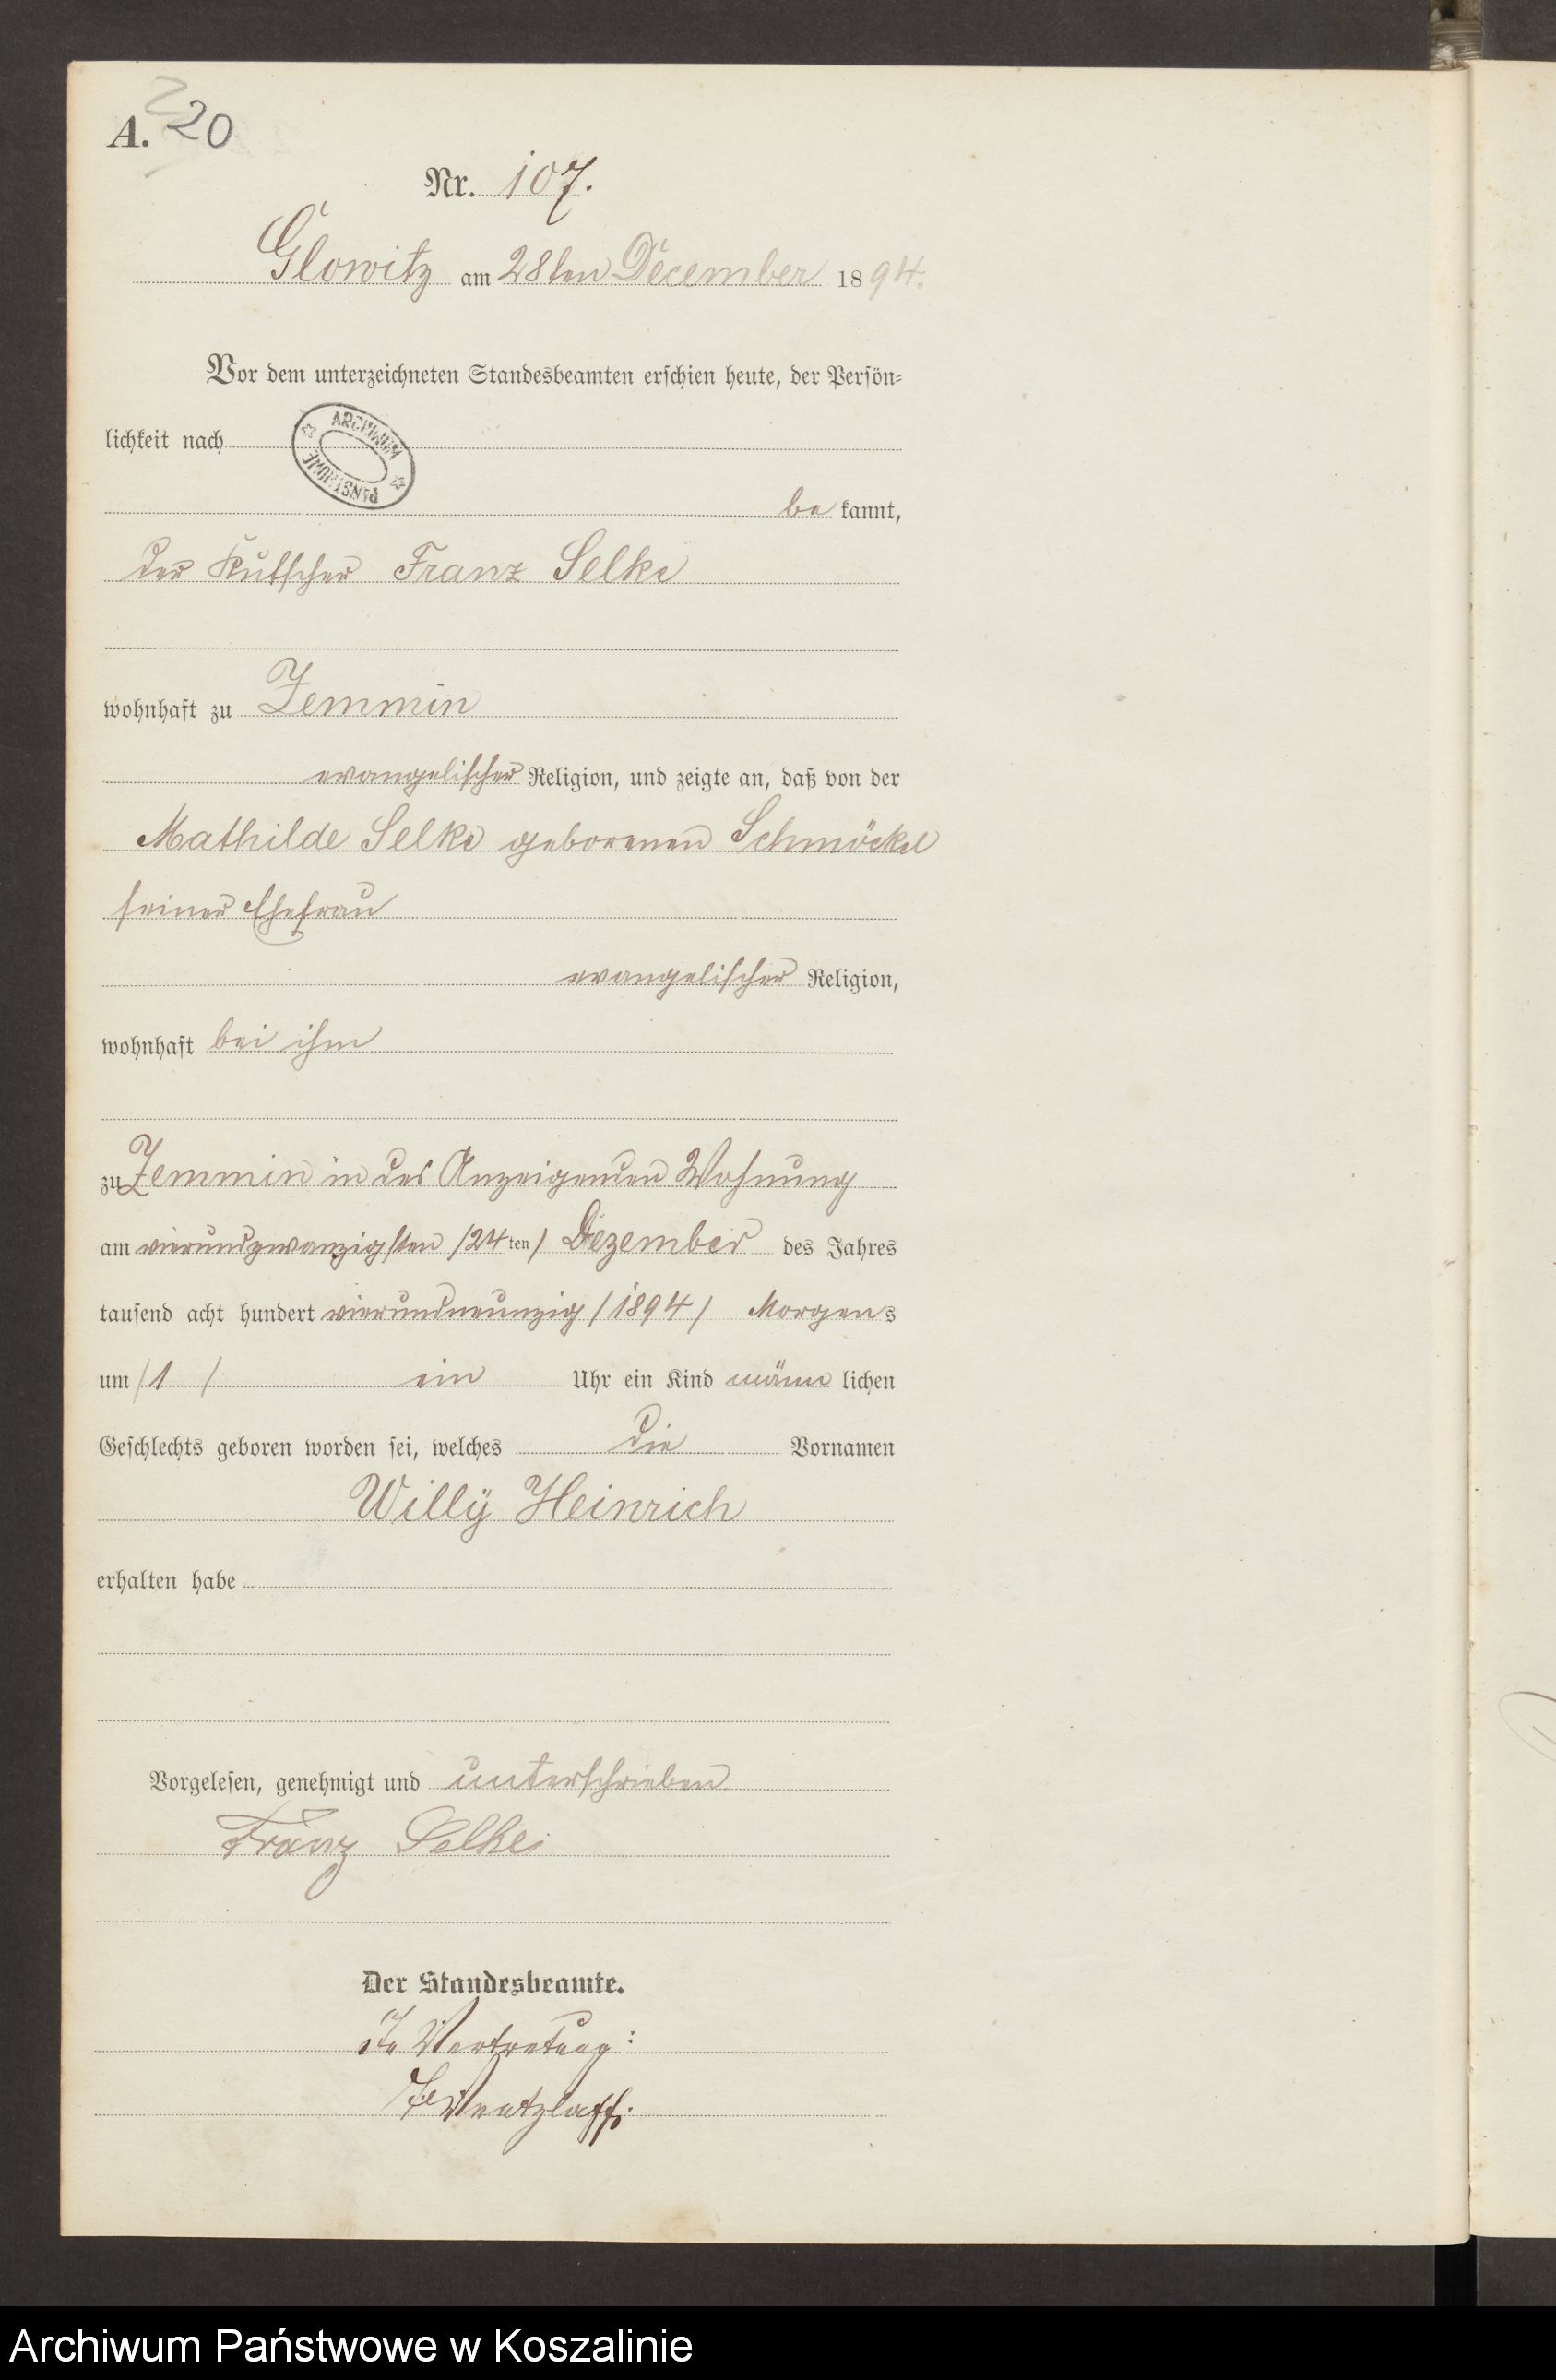 A. 220
Nr. 107.
Glowitz am 28ten December 1894.
Vor dem unterzeichneten Standesbeamten erschien heute, der Persön-
lichkeit nach
ARCHIWUM PAŃSTWOWE
be kannt,
der Kutscher Franz Selke
wohnhaft zu Zemmin
evangelischer Religion, und zeigte an, daß von der
Mathilde Selke geborenen Schmöckel
seiner Ehefrau
evangelischer Religion,
wohnhaft bei ihm
zu Zemmin in des Anzeigenden Wohnung
am vierundzwanzigsten /24ten/ Dezember des Jahres
tausend acht hundert vierundneunzig /1894/ Morgens
um /1 / ein Uhr ein Kind männ lichen
Geschlechts geboren worden sei, welches die Vornamen
Willÿ Heinrich
erhalten habe
Vorgelesen, genehmigt und unterschrieben
Franz Selke
Der Standesbeamte.
In Vertretung:
Wentzlaff.
Archiwum Państwowe w Koszalinie